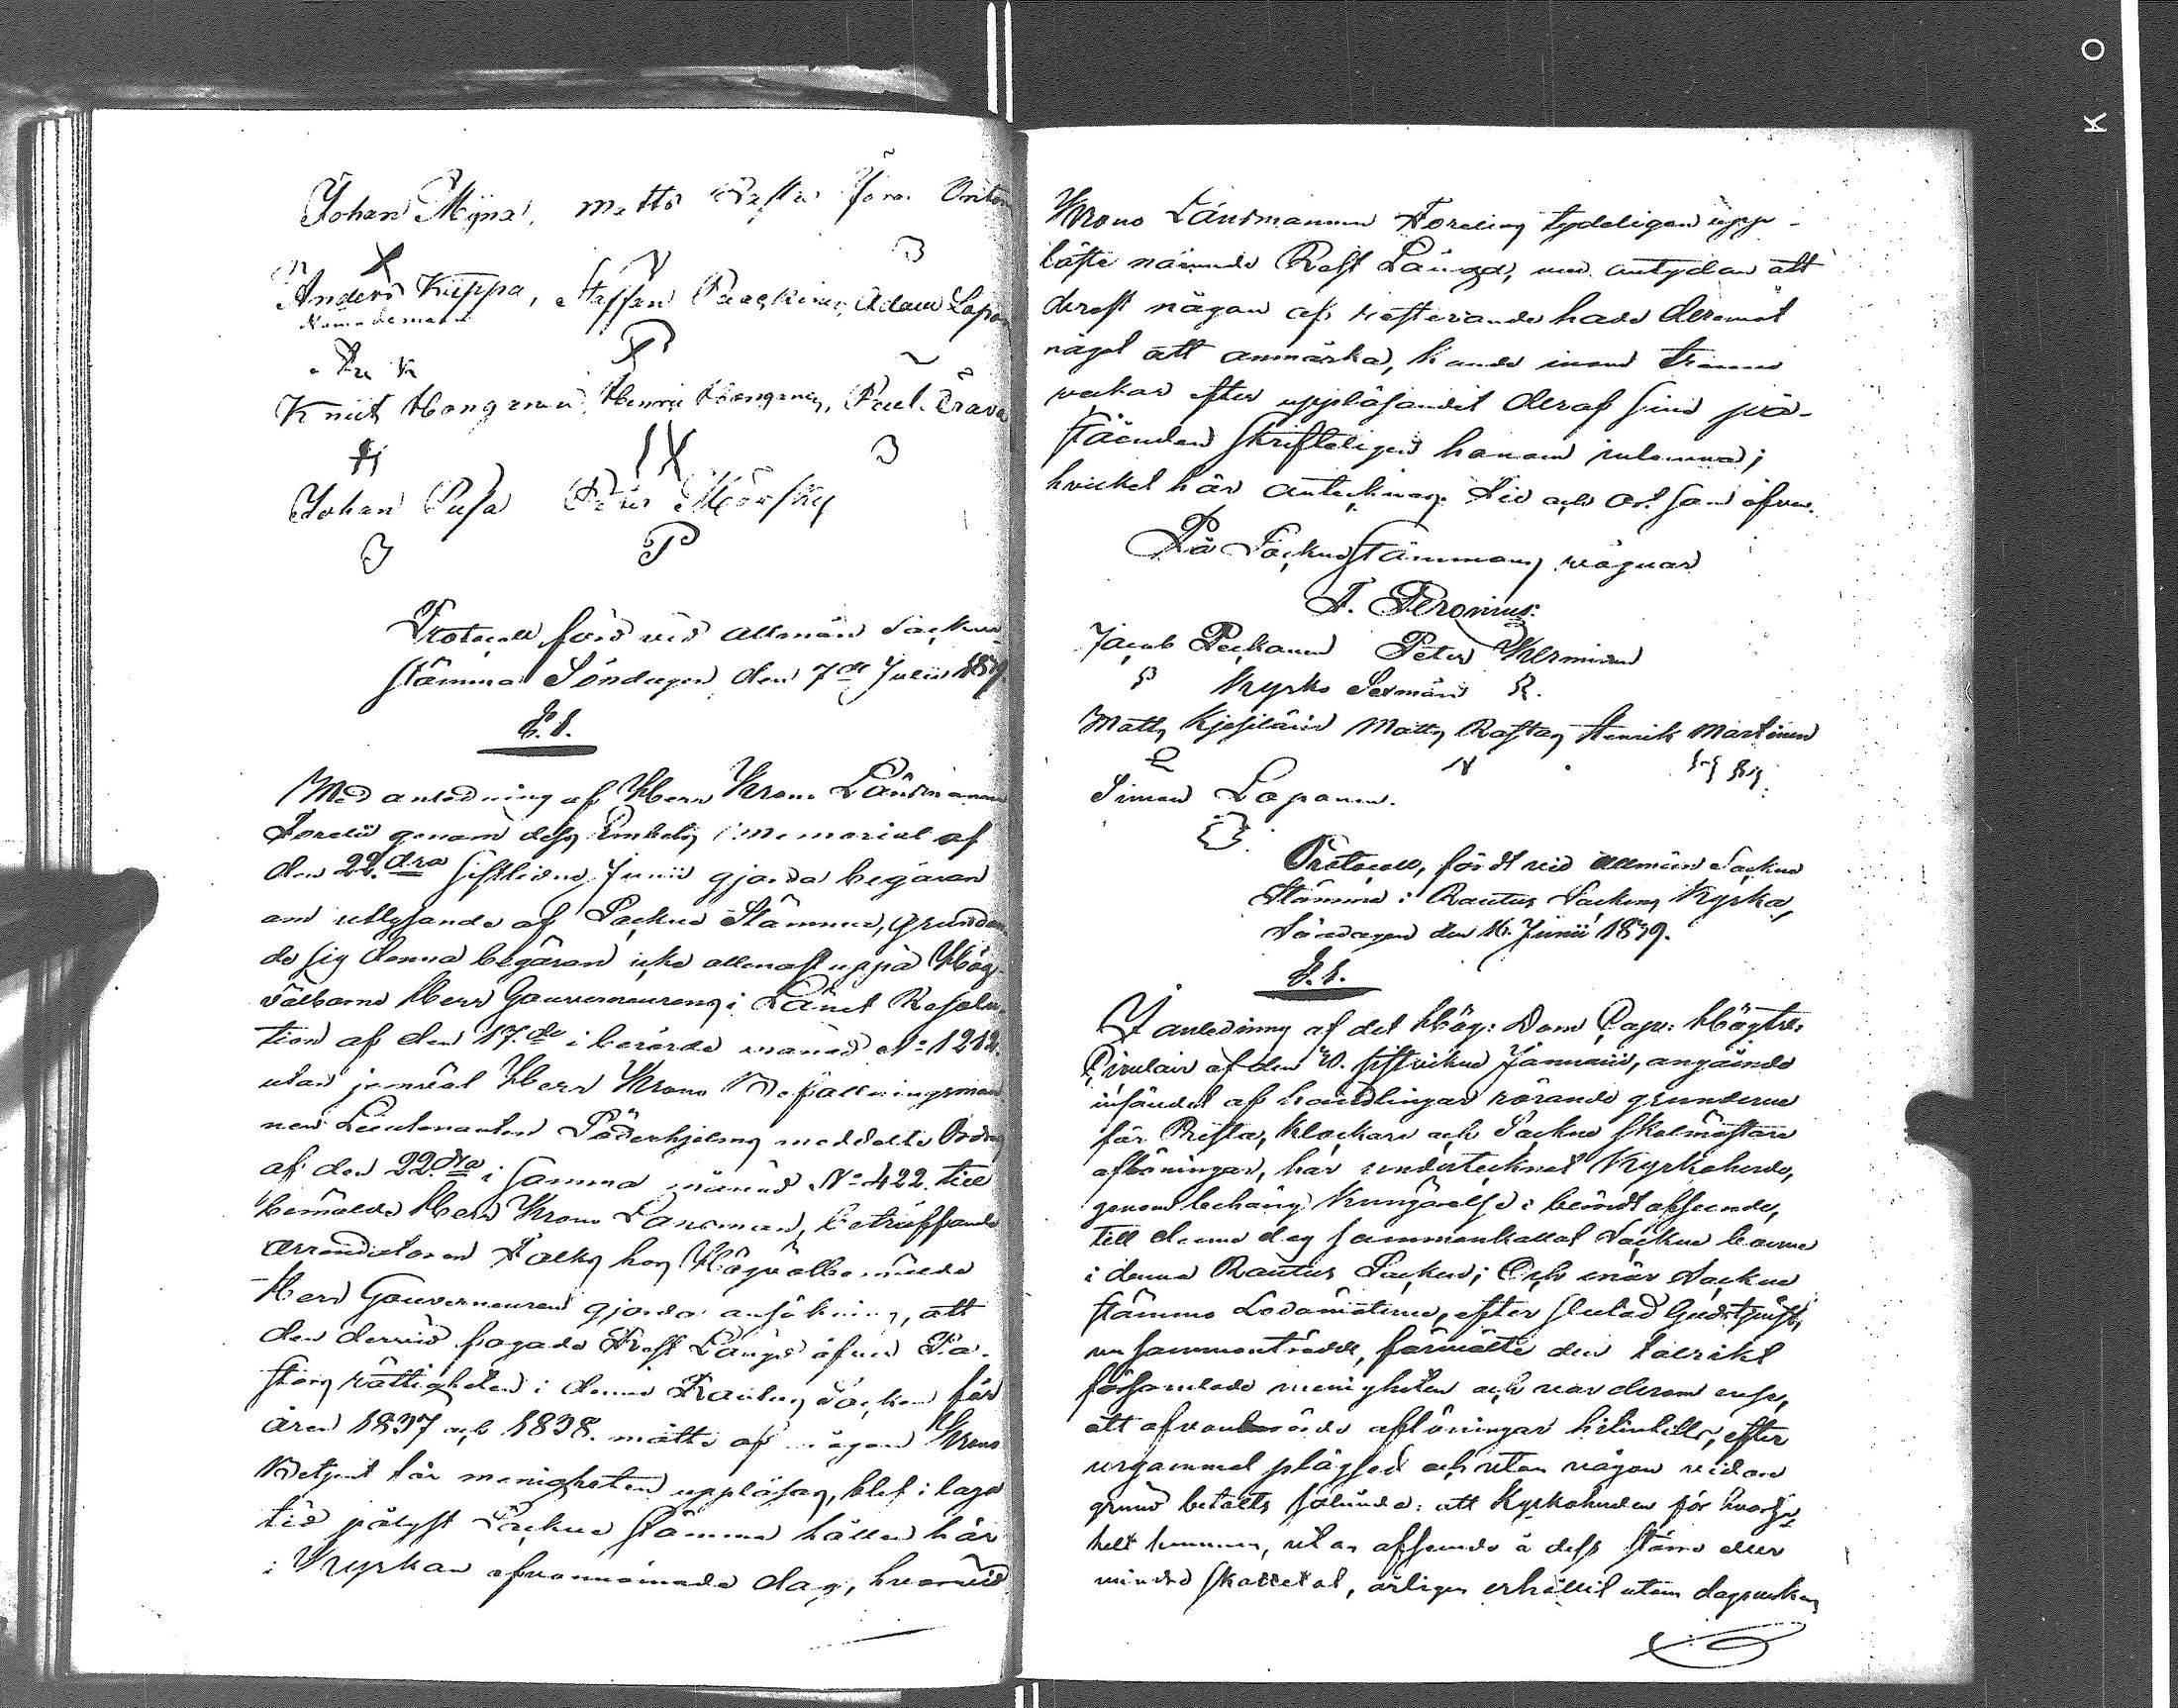 Johan Mÿna, Matts
Anders Kuppa, Staffan Paackinen, Adam Lapan
Nämndeman
Knut Hongana, Henric Hongana, Paul
Johan Pusa Peter Mörsky
Protocoll förd vid allmän Sockne
stämma Söndagen den 7de Julii 1839
§. 1.
Med anledning af Herr Krono Länsmannen
Forelii genom dess Embets Memorial af
den 22.dra sistledne Junii gjorda begäran
om utlysande af Sockne Stämma, grundan
de sig denna begäran icke allenast uppå Hög
välborne Herr Gouverneurens i Länet Resolu
tion af den 17.de i berörde månad No 1212.
utan jemväl Herr Krono Befallningsman
nen Lieutenanten Söderhjelms meddelte Ordres
af den 22.dra i samma månad No 422. till
bemälde Herr Krono Länsman, beträffande
Arrendatoren Falks hos Högvälbemälde
Herr Gouverneuren gjorda ansökning, att
den dervid fogade Rest Längd öfver Pa-
stors rättigheten i denna Rautus Socken för
åren 1837 och 1838. måtte af någon Krono
Betjent för menigheten uppläsas, blef i laga
tid pålyst Sockne stämma hållen här
i Kyrkan ofvannämnde dag, hvarvid
Krono Länsmannen Forelius tydeligen upp-
läste nämnde Rest Längd, med antydan att
derest någon af resterande hade deremot
något att anmärka, kunde inom trenne
veckor efter uppläsandet deraf sine på-
ståenden skrifteligen honom inlemna;
hvilket här antecknas. Tid och ort som ofvan.
På Sockne Stämmans vägnar
F. Peronius.
Jacob Peckanen Peter Kerminen
P Kyrko Sexmän
Matts Kjesiläin Matts Rastas Henrik Martinen
Simon Lapanen.
Protocoll, fördt vid allmän Sockne
Stämma i Rautus Sockens Kyrka,
Söndagen den 16. Junii 1839.
§. 1.
I anledning af det Hög: Dom Cap: Högtr:
Circulair af den 10. sistvikne Januarii, angående
insändet af handlingar rörande grunderne
för Prests, Klockare och Sockne Skolmästare
aflöningar, har undertecknad Kyrkoherde,
genom behörig kungörelse i berördt afseende,
till denna dag sammankallat Sockne boerne
i denna Rautus Socken; Och enär Sockne
stämmo Ledamöterne, efter slutad Gudstjenst,
nu sammanträdt, förmälte den talrikt
församlade menigheten och var derom ense,
att ofvanberörde aflöningar hitintills, efter
urgammal plägsed och utan någon vidare
grund betalts sålunda: att Kyrkoherden för hvarje
helt hemman, utan afseende å dess större eller
mindre skattetal, årligen erhållit utom dagsverken